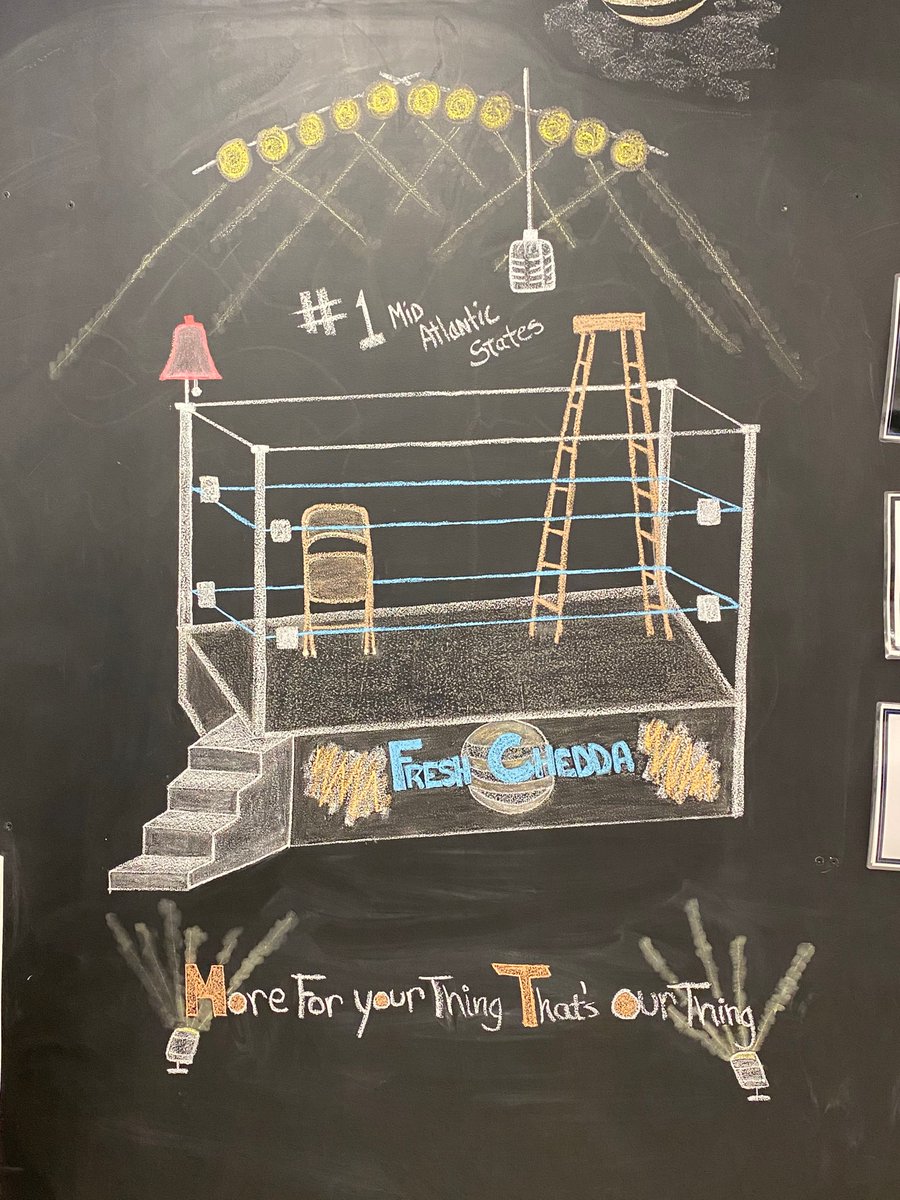 #1 Mid
Atlantic
States
FRESH CHEDDA
More For your Thing That's Our Thing